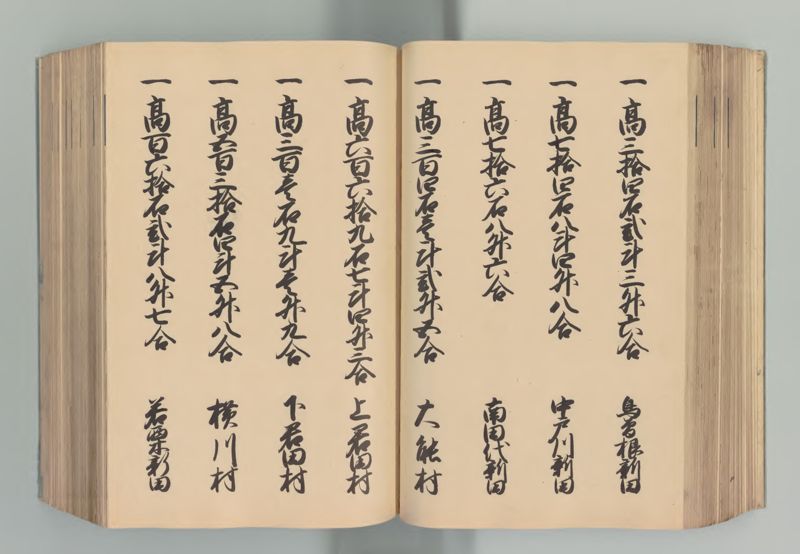 一 高三拾四石弐斗三升六合 鳥曽根新田
一 高七拾四石八斗四升八合 中戸川新田
一 高七拾六石八升六合 南田代新田
一 高三百四石壱斗弐升五合 大能村
一 高六百六拾九石七斗四升三合 上君田村
一 高三百壱石九斗壱升九合 下君田村
一 高五百三拾石四斗五升八合 横川村
一 高百六拾石弐斗八升七合 若栗新田